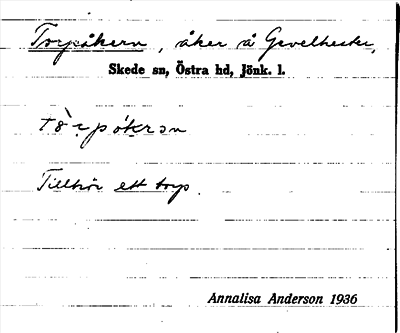 Torpåkern, åker å Gavelhester,
Skede sn, Östra hd, Jönk. l.
tò̀rpåkrən
Tillhör ett torp.
Annalisa Anderson 1936